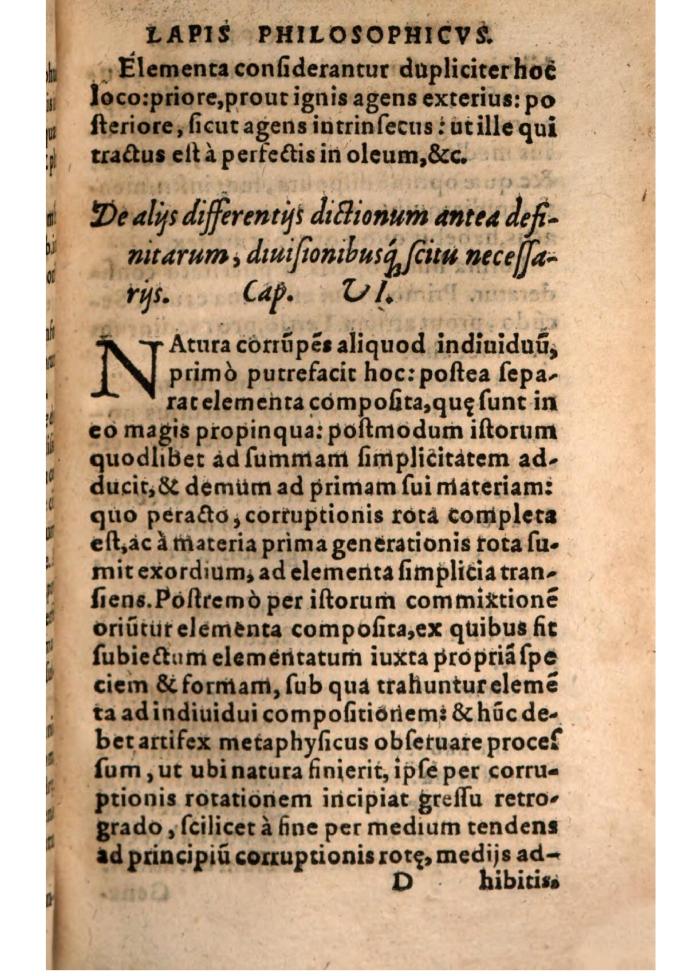 LAPIS PHILOSOPHICVS.
Elementa considerantur dupliciter hoc
loco: priore, prout ignis agens exterius: po
steriore, sicut agens intrinsecus: ut ille qui
tractus est à perfectis in oleum, &c.
De alijs differentijs dictionum antea defi-
nitarum, diuisionibusq́ scitu necessa-
rijs. Cap. VI.
NAtura corrũpẽs aliquod indiuiduũ,
primò putrefacit hoc: postea sepa-
rat elementa composita, quę sunt in
eo magis propinqua: postmodum istorum
quodlibet ad summam simplicitatem ad-
ducit, & demum ad primam sui materiam:
quo peracto, corruptionis rota completa
est, ac à materia prima generationis rota su-
mit exordium, ad elementa simplicia tran-
siens. Postremò per istorum commixtionẽ
oriũtur elementa composita, ex quibus fit
subiectum elementatum iuxta propriã spe
ciem & formam, sub qua trahuntur elemẽ
ta ad indiuidui compositionem: & hũc de-
bet artifex metaphysicus obseruare proces
sum, ut ubi natura finierit, ipse per corru-
ptionis rotationem incipiat gressu retro-
grado, scilicet à fine per medium tendens
ad principiũ corruptionis rotę, medijs ad-
D hibitis,